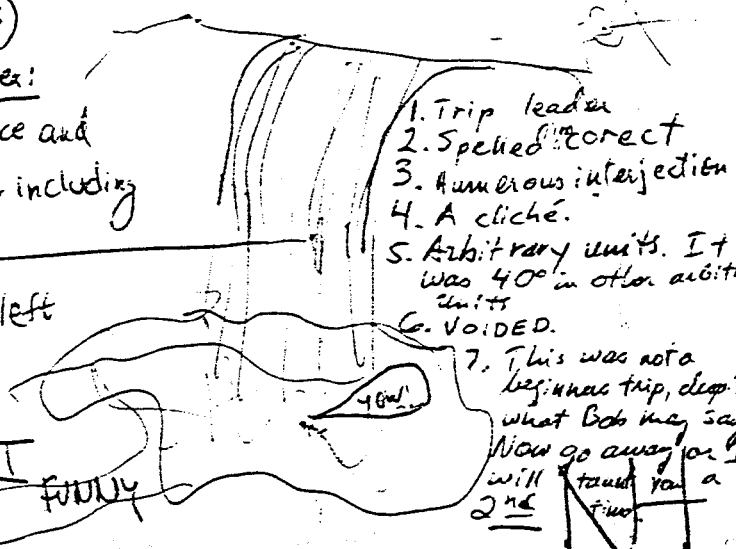 ce and
including
left
FUNNY
1. Trip leader
2. Spelled incorect
3. Humerous interjection
4. A cliché.
5. Arbitrary units. It
was 40° in other arbit
units
6. VOIDED.
7. This was not a
beginners trip, despi
what Bob may say
Now go away or I
will taunt you a
2nd time.
yow!
NH